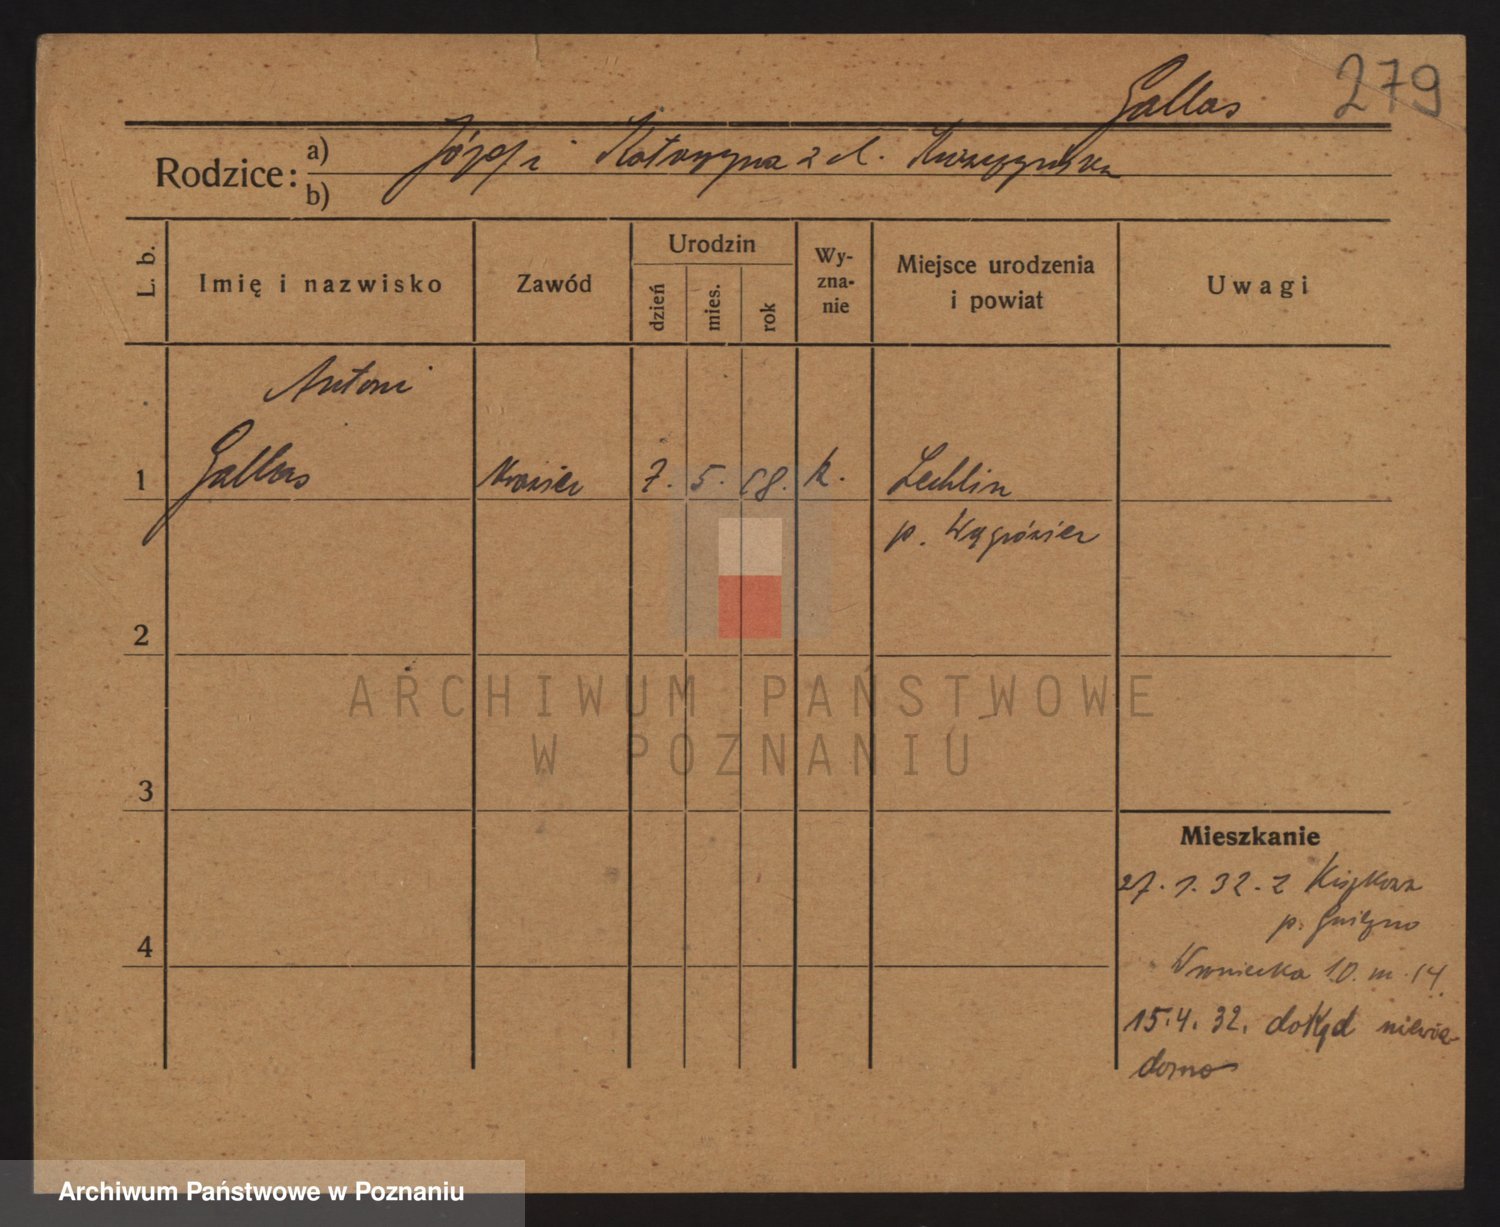 279
Gallas
Rodzice: a) Józef i Katarzyna z d.
b)
L. b. Imię i nazwisko Zawód Urodzin dzień mies. rok Wy-zna-nie Miejsce urodzenia i powiat Uwagi
Antoni
1 Gallas 7. 5. 08. k. Lechlin
p. Wągrówiec
2
ARCHIWUM PAŃSTWOWE
W POZNANIU
3
Mieszkanie
27. 1. 32. z Kiszkowa
p. Gniezno
4
Wroniecka 10. m. 14.
15. 4. 32. dokąd niewia-
domo
Archiwum Państwowe w Poznaniu